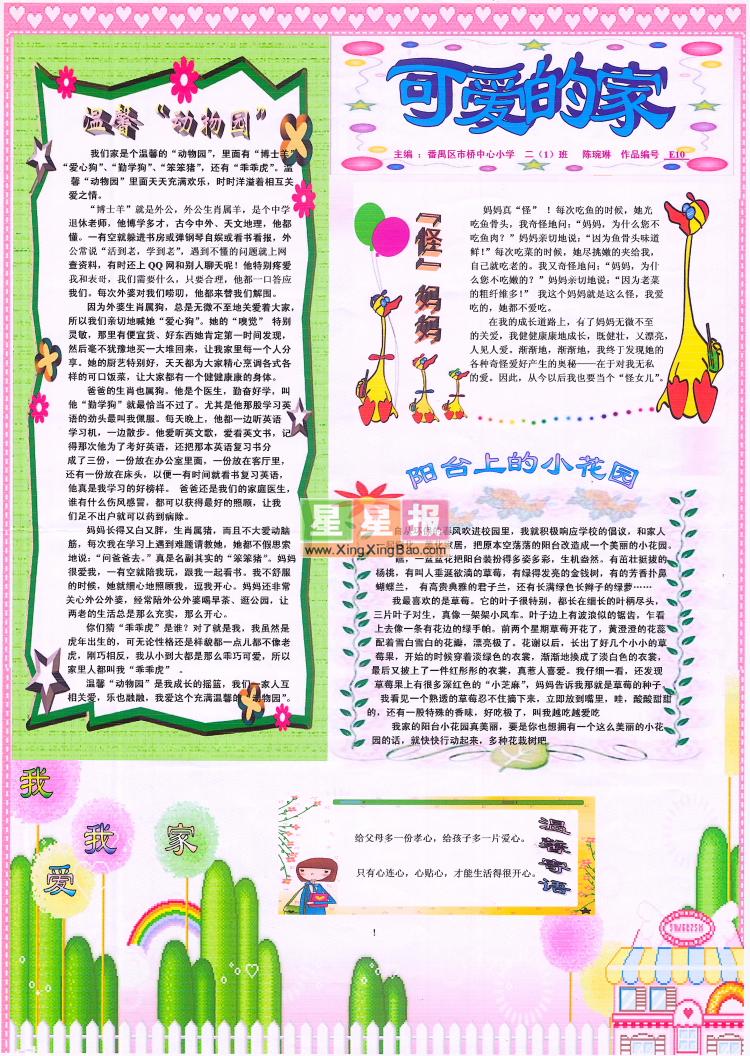 可爱的家
主编：番禺区市桥中心小学 二（1）班 陈琬琳 作品编号 E10
温馨“动物园”
我们家是个温馨的“动物园”，里面有“博士羊”
“爱心狗”、“勤学狗”、“笨笨猪”，还有“乖乖虎”。温
馨“动物园”里面天天充满欢乐，时时洋溢着相互关
爱之情。
“博士羊”就是外公，外公生肖属羊，是个中学
退休老师，他博学多才，古今中外、天文地理，他都
懂。一有空就躲进书房或弹钢琴自娱或看书看报，外
公常说“活到老，学到老”，遇到不懂的问题就上网
查资料，有时还上QQ网和别人聊天呢！他特别疼爱
我和表哥，我们需要什么，只要合理，他都一口答应
我们。每次外婆对我们唠叨，他都来替我们解围。
因为外婆生肖属狗，总是无微不至地关爱着大家，
所以我们亲切地喊她“爱心狗”。她的“嗅觉” 特别
灵敏，那里有便宜货、好东西她肯定第一时间发现，
然后毫不犹豫地买一大堆回来，让我家里每一个人分
享。她的厨艺特别好，天天都为大家精心烹调各式各
样的可口饭菜，让大家都有一个健健康康的身体。
爸爸的生肖也属狗。他是个医生，勤奋好学，叫
他“勤学狗”就最恰当不过了。尤其是他那股学习英
语的劲头最叫我佩服。每天晚上，他都一边听英语
学习机，一边散步。他爱听英文歌，爱看英文书，记
得那次他为了考好英语，还把那本英语复习书分
成了三份，一份放在办公室里面，一份放在客厅里，
还有一份放在床头，以便一有时间就看书复习英语，
他真是我学习的好榜样。 爸爸还是我们的家庭医生，
谁有什么伤风感冒，都可以获得最好的照顾，让我
们足不出户就可以药到病除。
妈妈长得又白又胖，生肖属猪，而且不大爱动脑
筋，每次我在学习上遇到难题请教她，她都不假思索
地说：“问爸爸去。”真是名副其实的“笨笨猪”。妈妈
很爱我，一有空就陪我玩，跟我一起看书。我不舒服
的时候，她就细心地照顾我，逗我开心。妈妈还非常
关心外公外婆，经常陪外公外婆喝早茶、逛公园，让
两老的生活总是那么充实，那么开心。
你们猜“乖乖虎”是谁？对了就是我，我虽然是
虎年出生的，可无论性格还是样貌都一点儿都不像老
虎，刚巧相反，我从小到大都是那么乖巧可爱，所以
家里人都叫我“乖乖虎” 。
温馨“动物园”是我成长的摇篮，我们一家人互
相关爱，乐也融融，我爱这个充满温馨的“动物园”。
「怪」妈妈
妈妈真“怪” ！每次吃鱼的时候，她光
吃鱼骨头，我奇怪地问：“妈妈，为什么您不
吃鱼肉？”妈妈亲切地说：“因为鱼骨头味道
鲜！”每次吃菜的时候，她尽挑嫩的夹给我，
自己就吃老的。我又奇怪地问：“妈妈，为什
么您不吃嫩的？”妈妈亲切地说：“因为老菜
的粗纤维多！” 我这个妈妈就是这么怪，我爱
吃的，她都不爱吃。
在我的成长道路上，有了妈妈无微不至
的关爱，我健健康康地成长，既健壮，又漂亮，
人见人爱。渐渐地，渐渐地，我终于发现她的
各种奇怪爱好产生的奥秘——在于对我无私
的爱。因此，从今以后我也要当个“怪女儿”。
阳台上的小花园
春风吹进校园里，我就积极响应学校的倡议，和家人
家居，把原本空荡荡的阳台改造成一个美丽的小花园。
瞧，一盆盆花把阳台装扮得多姿多彩，生机盎然。有茁壮挺拔的
杨桃，有叫人垂涎欲滴的草莓，有绿得发亮的金钱树，有的芳香扑鼻
蝴蝶兰， 有高贵典雅的君子兰，还有长满绿色长辫子的绿萝……
我最喜欢的是草莓。它的叶子很特别，都长在细长的叶柄尽头，
三片叶子对生，真像一架架小风车。叶子边上有波浪似的锯齿，乍看
上去像一条有花边的绿手帕。前两个星期草莓开花了，黄澄澄的花蕊
配着雪白雪白的花瓣，漂亮极了。花谢以后，长出了好几个小小的草
莓果，开始的时候穿着淡绿色的衣裳，渐渐地换成了淡白色的衣裳，
最后又披上了一件红彤彤的衣裳，真惹人喜爱。我仔细一看，还发现
草莓果上有很多深红色的“小芝麻”，妈妈告诉我那就是草莓的种子。
我看见一个熟透的草莓忍不住摘下来，立即放到嘴里，哇，酸酸甜甜
的，还有一股特殊的香味，好吃极了，叫我越吃越爱吃
我家的阳台小花园真美丽，要是你也想拥有一个这么美丽的小花
园的话，就快快行动起来，多种花栽树吧
星星报
www.XingXingBao.com
我爱我家
给父母多一份孝心，给孩子多一片爱心。
只有心连心，心贴心，才能生活得很开心。
温馨寄语
！
SWEETSH